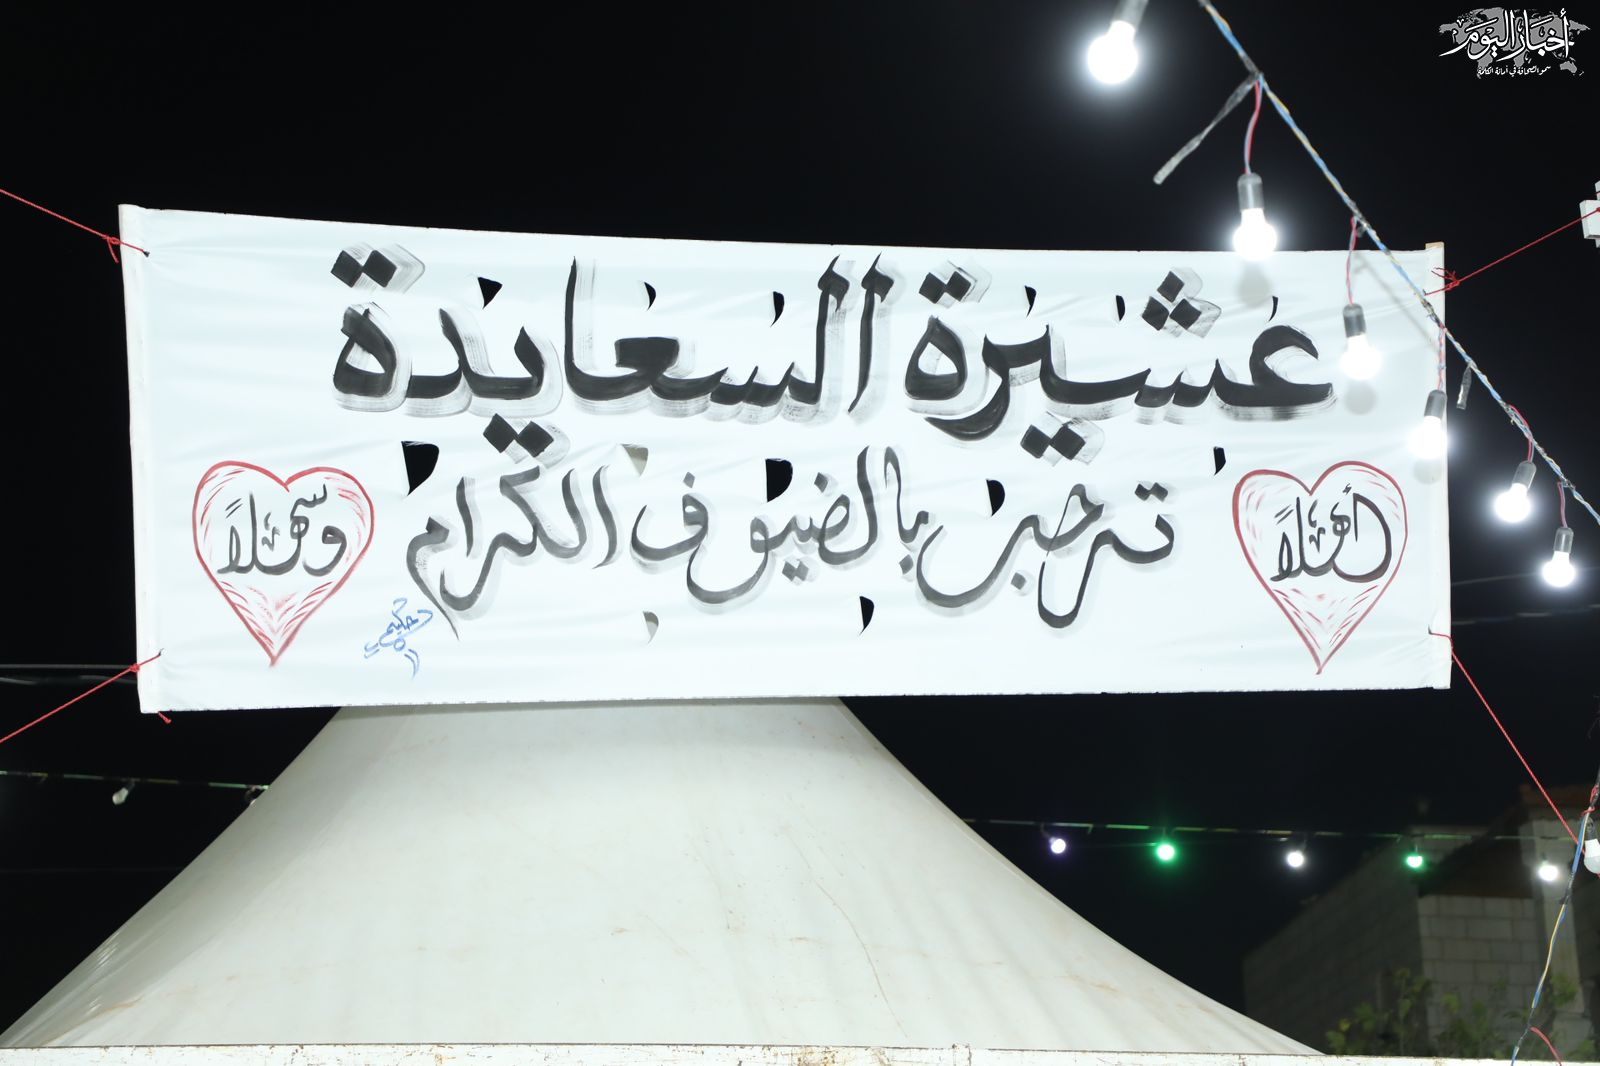 أخبار اليوم
سمو الصحافة في أمانة الكلمة
عشيرة السعايدة
ترحب بالضيوف الكرام
أهلاً
وسهلاً